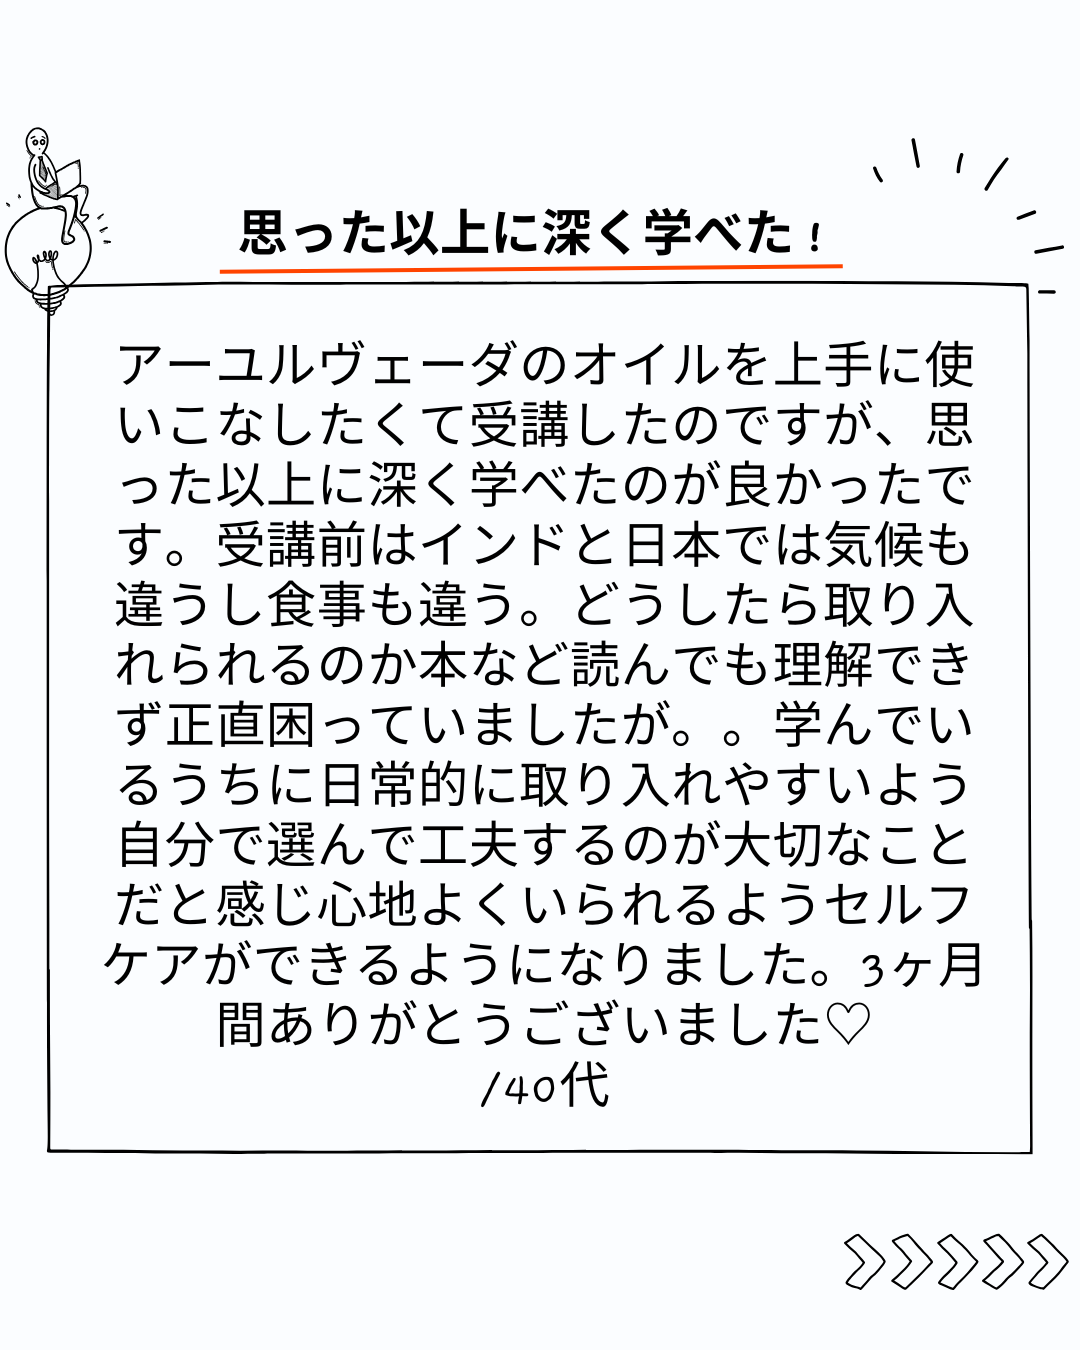 思った以上に深く学べた！
アーユルヴェーダのオイルを上手に使
いこなしたくて受講したのですが、思
った以上に深く学べたのが良かったで
す。受講前はインドと日本では気候も
違うし食事も違う。どうしたら取り入
れられるのか本など読んでも理解でき
ず正直困っていましたが。。学んでい
るうちに日常的に取り入れやすいよう
自分で選んで工夫するのが大切なこと
だと感じ心地よくいられるようセルフ
ケアができるようになりました。3ヶ月
間ありがとうございました♡
/40代